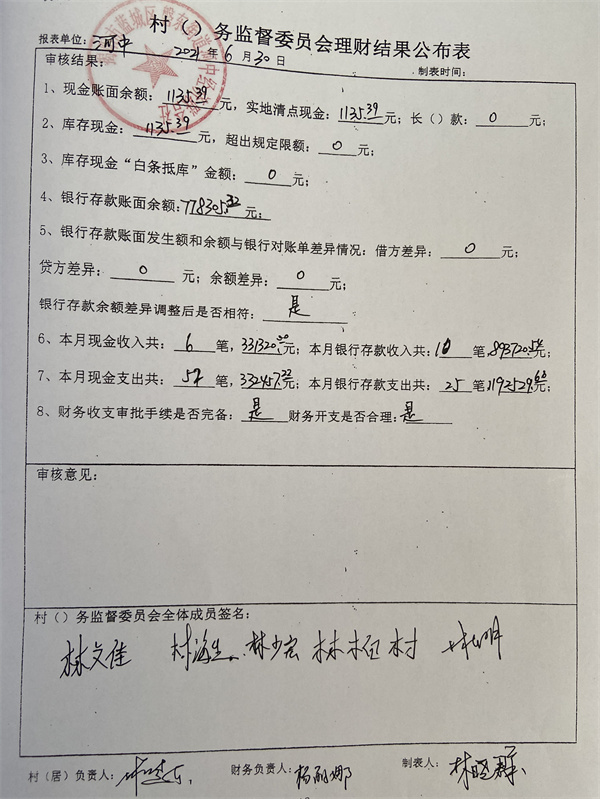 村（）务监督委员会理财结果公布表
报表单位：河中 2021年6月30日 制表时间：
审核结果：
1、现金账面余额：1135.39元，实地清点现金：1135.39元；长（）款：0元；
2、库存现金：1135.39元，超出规定限额：0元；
3、库存现金“白条抵库”金额：0元；
4、银行存款账面余额：778305.32元；
5、银行存款账面发生额和余额与银行对账单差异情况：借方差异：0元；
贷方差异：0元；余额差异：0元；
银行存款余额差异调整后是否相符：是
6、本月现金收入共：6笔，331320.20元；本月银行存款收入共：10笔，元；
7、本月现金支出共：笔，332457.22元；本月银行存款支出共：25笔1192529.60元；
8、财务收支审批手续是否完备：是 财务开支是否合理：是
审核意见：
村（）务监督委员会全体成员签名：
林文佳 林海生 林少宏
村（居）负责人： 财务负责人：杨耐娜 制表人：林晓群